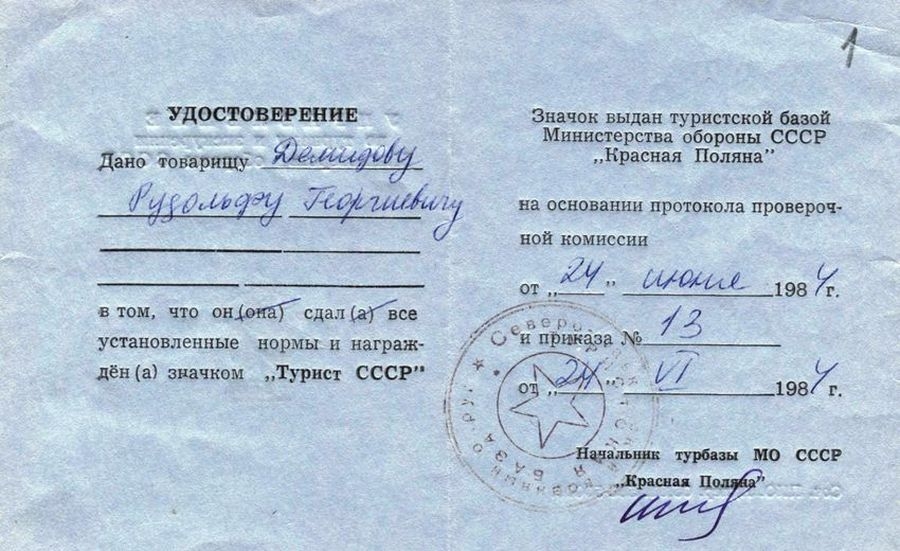 1
УДОСТОВЕРЕНИЕ
Дано товарищу Демидову
Рудольфу Георгиевичу
в том, что он (она) сдал (а) все
установленные нормы и награж-
дён (а) значком „Турист СССР"
Значок выдан туристской базой
Министерства обороны СССР
„Красная Поляна"
на основании протокола провероч-
ной комиссии
от „24" июня 1984 г.
и приказа № 13
от „24" VI 1984 г.
Начальник турбазы МО СССР
„Красная Поляна"